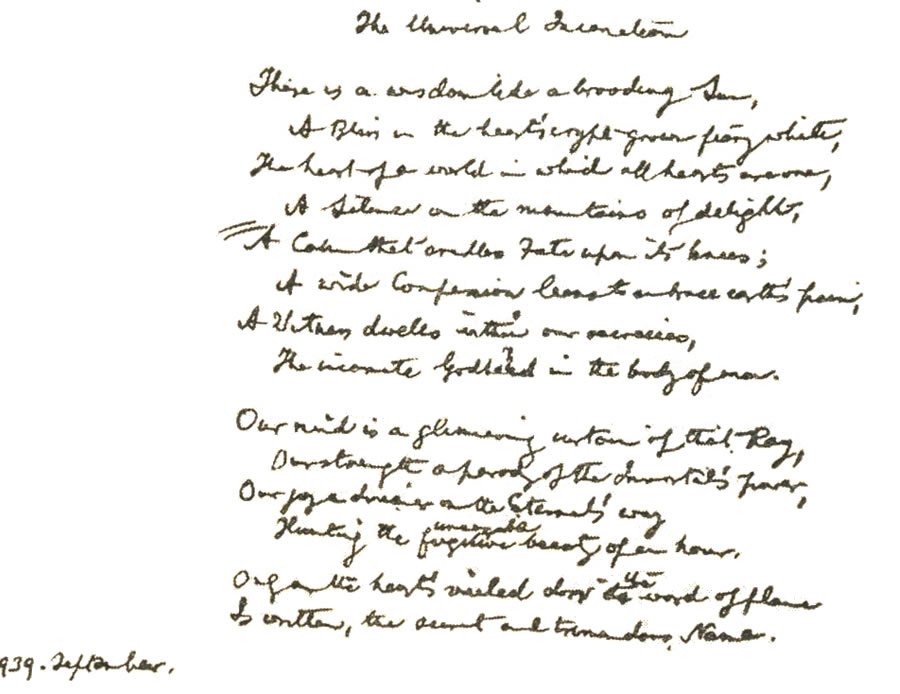 The Universal Incarnation
There is a wisdom like a brooding Sun,
A Bliss in the heart's crypt grown fiery white,
The heart of a world in which all hearts are one,
A Silence on the mountains of delight,
A Calm that cradles Fate upon its knees;
A wide Compassion leans to embrace earth's pain,
A Witness dwells within our secrecies,
The incarnate Godhead in the body of man.
Our mind is a glimmering curtain of that Ray,
Our strength a parody of the Immortal's power,
Our joy a dreamer on the Eternal's way
unseizable
Hunting the fugitive beauty of an hour.
the
Only on the heart's veiled door word of flame
Is written, the secret and tremendous Name.
939. September.